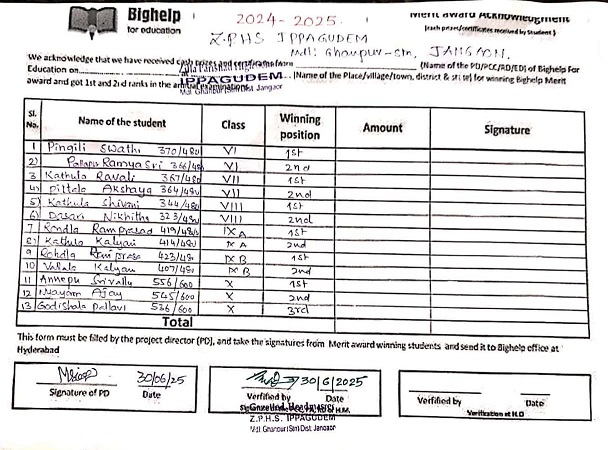 Bighelp
for education
2024 - 2025.
Merit award Acknowledgment
(cash prizes/certificates received by Student)
Z.P.H.S IPPAGUDEM
Mdl: Ghanpur-stn, JANGAON.
We acknowledge that we have received cash prizes and certificates from (Name of the PD/PCC/RD/ED) of Bighelp For
Education on IPPAGUDEM (Name of the Place/village/town, district & state) for winning Bighelp Merit
award and got 1st and 2nd ranks in the annual examinations
Mdl Ghanpur(Stn)Dist Jangaon
Sl. No. Name of the student Class Winning position Amount Signature
1 Pingili Swathi 370/480 VI 1st
2) Ramya Sri 366/480 VI 2nd
3 Kathula Ravali 367/480 VII 1st
4) Pittala Akshaya 364/480 VII 2nd
5) Kathula Shivani 344/480 VIII 1st
6) Dasari Nikhitha 323/480 VIII 2nd
7 Rondla Ramprasad 419/480 IX A 1st
8) Kathula Kalyani 414/480 IX A 2nd
9 423/480 IX B 1st
10 Kalyan 407/480 IX B 2nd
11 Annepu Srivalli 556/600 X 1st
12 Ajay 545/600 X 2nd
13 Godishala pallavi 536/600 X 3rd
Total
This form must be filled by the project director (PD), and take the signatures from Merit award winning students and send it to Bighelp office at
Hyderabad
30/06/25
Signature of PD Date
30/6/2025
Verified by Date
Gazetted Headmaster
Z.P.H.S. IPPAGUDEM
Mdl Ghanpur(Stn)Dist Jangaon
Verified by Date
Verification at H.O